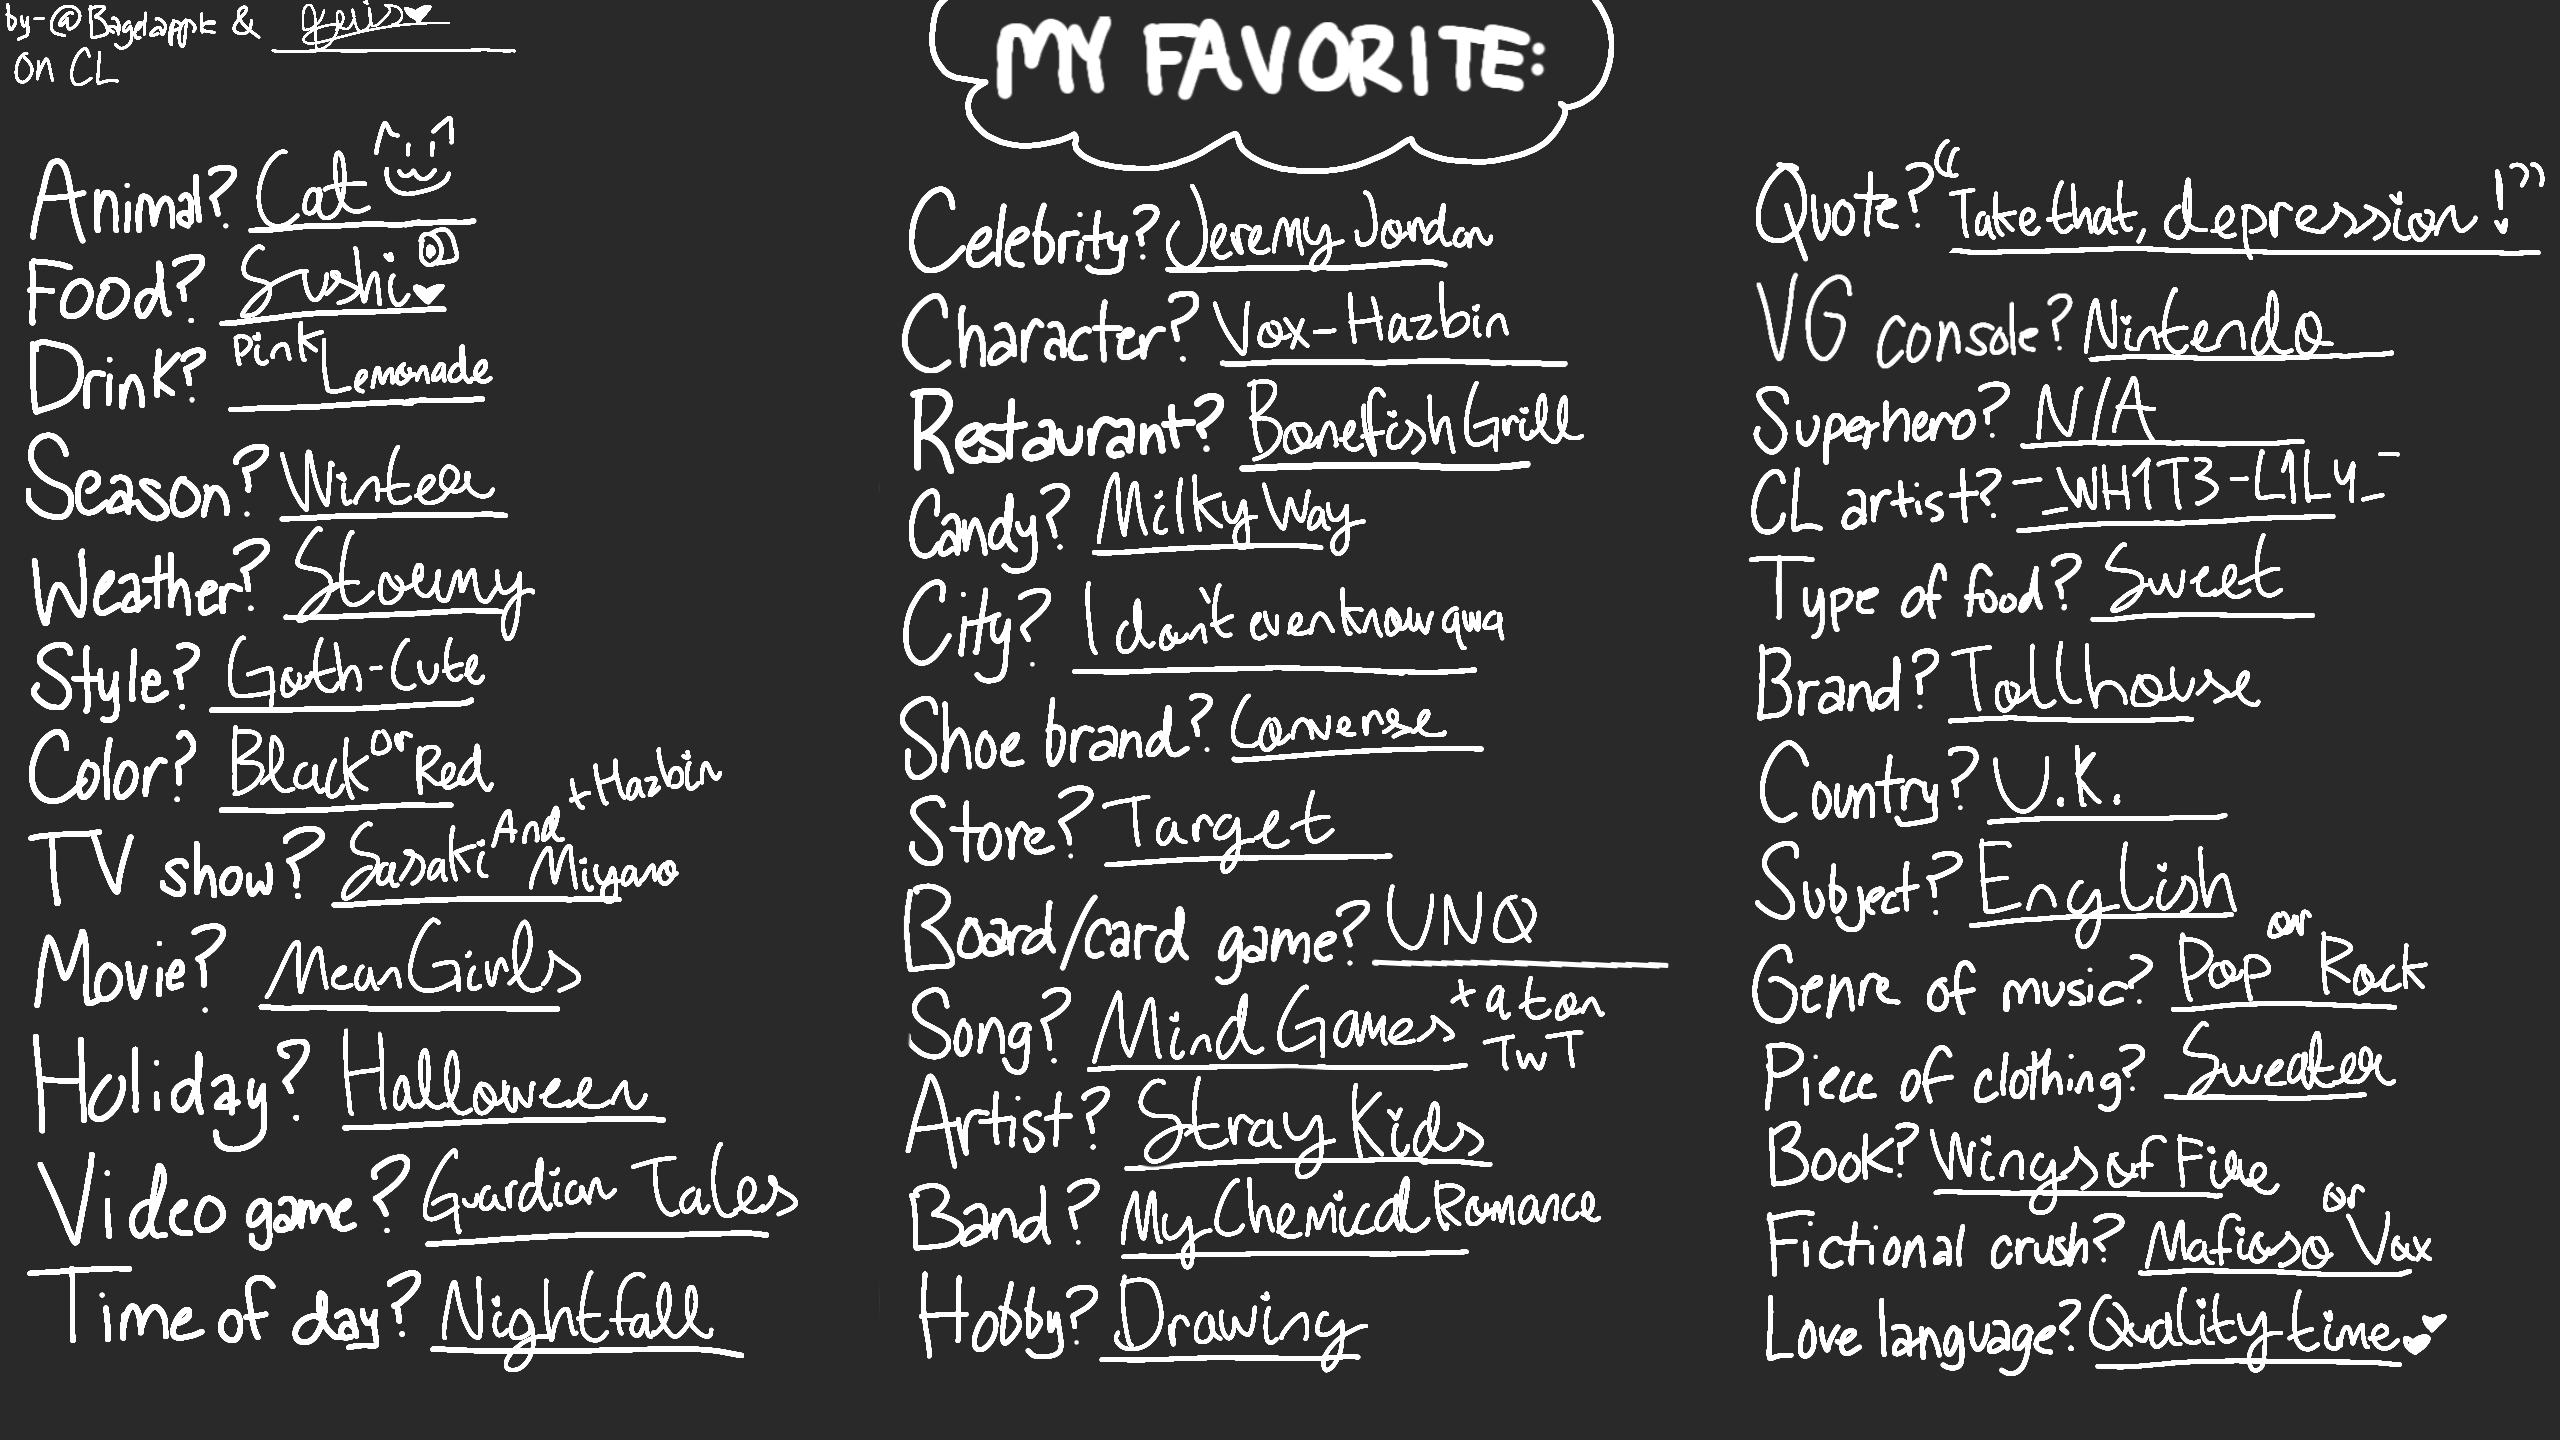 by-@Bagelapple &
on CL
MY FAVORITE:
Animal? Cat
Food? Sushi
Drink? Pink Lemonade
Season? Winter
Weather? Stormy
Style? Goth-Cute
Color? Black or Red
TV show? Sasaki And Miyano + Hazbin
Movie? Mean Girls
Holiday? Halloween
Video game? Guardian Tales
Time of day? Nightfall
Celebrity? Jeremy Jordan
Character? Vox-Hazbin
Restaurant? Bonefish Grill
Candy? Milky Way
City? I don't even know qwq
Shoe brand? Converse
Store? Target
Board/card game? UNO
Song? Mind Games + a ton TwT
Artist? Stray Kids
Band? My Chemical Romance
Hobby? Drawing
Quote? "Take that, depression!"
VG console? Nintendo
Superhero? N/A
CL artist? -_WH1T3-L1L4_-
Type of food? Sweet
Brand? Tollhouse
Country? U.K.
Subject? English
Genre of music? Pop or Rock
Piece of clothing? Sweater
Book? Wings of Fire
Fictional crush? Mafioso or Vox
Love language? Quality time